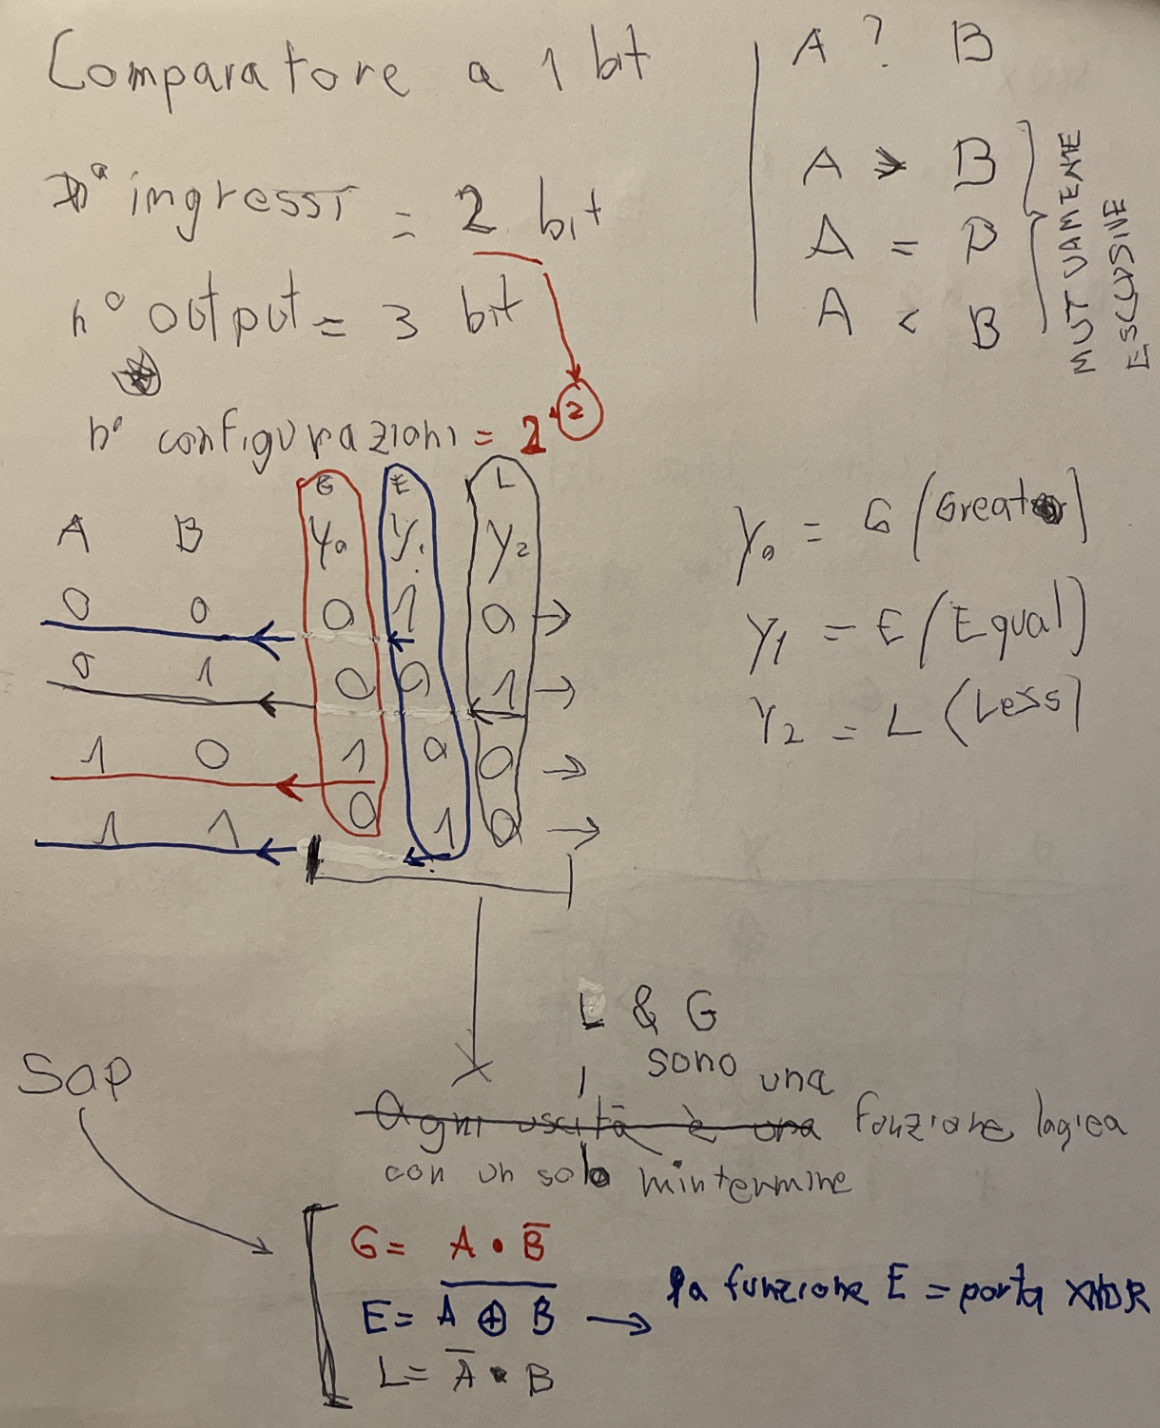 Comparatore a 1 bit
n° ingressi = 2 bit
n° output = 3 bit
n° configurazioni = 2²
A ? B
A > B
A = B
A < B
MUTUAMENTE
ESCLUSIVE
G E L
A B Y₀ Y₁ Y₂
0 0 0 1 0 →
0 1 0 0 1 →
1 0 1 0 0 →
1 1 0 1 0 →
Y₀ = G (Greater)
Y₁ = E (Equal)
Y₂ = L (Less)
L & G
sono una
Ogni uscita è una funzione logica
con un solo mintermine
SOP
G = A • B̅
E = \overline{A ⊕ B} → la funzione E = porta XNOR
L = A̅ • B